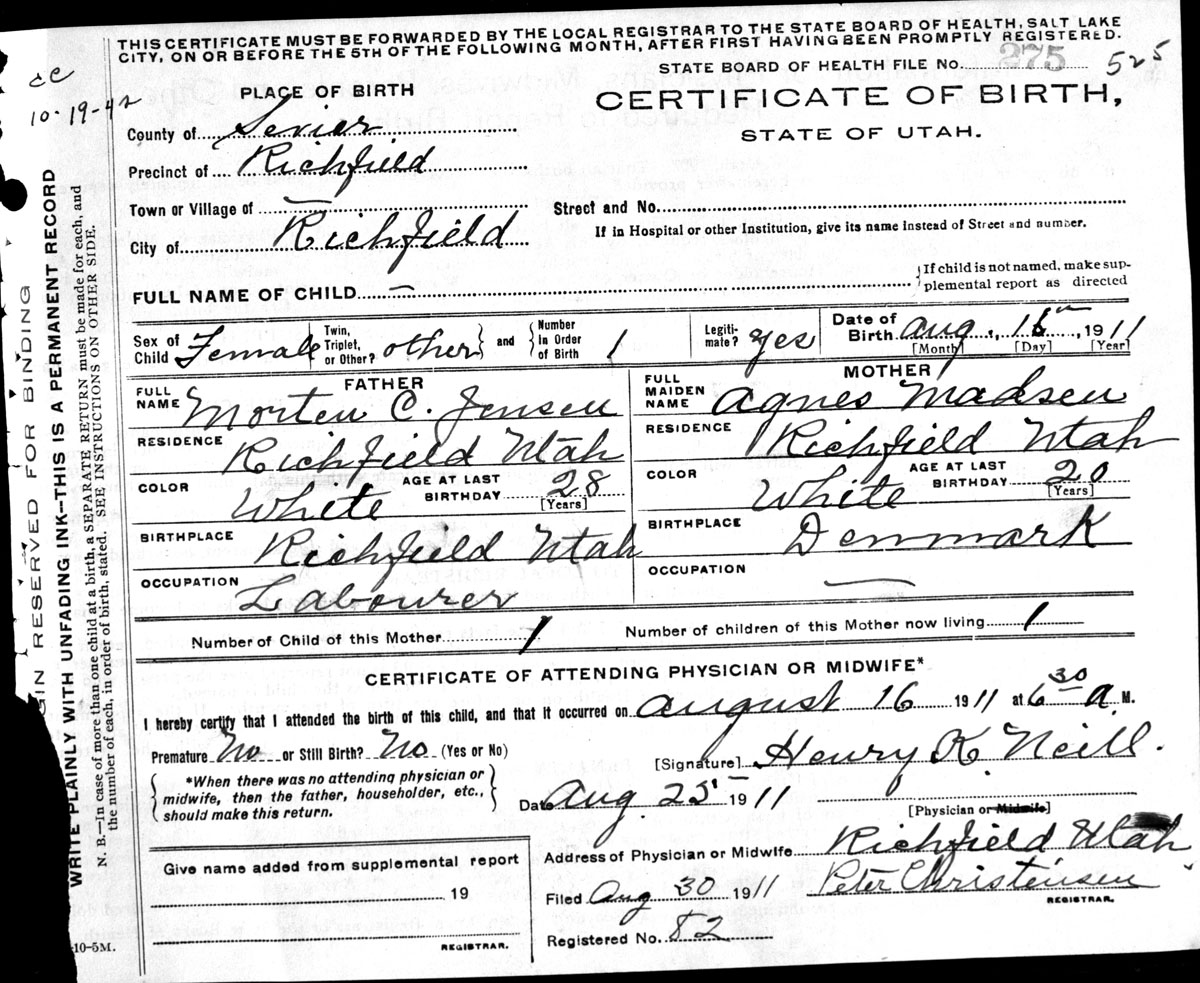 THIS CERTIFICATE MUST BE FORWARDED BY THE LOCAL REGISTRAR TO THE STATE BOARD OF HEALTH, SALT LAKE
CITY, ON OR BEFORE THE 5TH OF THE FOLLOWING MONTH, AFTER FIRST HAVING BEEN PROMPTLY REGISTERED.
STATE BOARD OF HEALTH FILE NO. 275 525
10-19-42
PLACE OF BIRTH
CERTIFICATE OF BIRTH,
STATE OF UTAH.
County of Sevier
Precinct of Richfield
Town or Village of —
Street and No.
City of Richfield
If in Hospital or other Institution, give its name Instead of Street and number.
FULL NAME OF CHILD —
If child is not named, make sup-
plemental report as directed
Sex of Child Female
Twin, Triplet, or Other? other
and
Number In Order of Birth 1
Legiti-mate? yes
Date of Birth Aug. 16, 1911
[Month] [Day] [Year]
FATHER
FULL NAME Morten C. Jensen
RESIDENCE Richfield Utah
COLOR White
AGE AT LAST BIRTHDAY 28
[Years]
BIRTHPLACE Richfield Utah
OCCUPATION Labourer
MOTHER
FULL MAIDEN NAME Agnes Madsen
RESIDENCE Richfield Utah
COLOR White
AGE AT LAST BIRTHDAY 20
[Years]
BIRTHPLACE Denmark
OCCUPATION —
Number of Child of this Mother 1
Number of children of this Mother now living 1
CERTIFICATE OF ATTENDING PHYSICIAN OR MIDWIFE*
I hereby certify that I attended the birth of this child, and that it occurred on August 16 1911 at 6 30 a. M.
Premature No or Still Birth? No (Yes or No)
[Signature] Henry K. Neill.
*When there was no attending physician or
midwife, then the father, householder, etc.,
should make this return.
Date Aug. 25 1911
[Physician or Midwife]
Address of Physician or Midwife Richfield Utah
Give name added from supplemental report
19
REGISTRAR.
Filed Aug 30 1911 Peter Christensen
REGISTRAR.
Registered No. 82
10-5M.
GIN RESERVED FOR BINDING
WRITE PLAINLY WITH UNFADING INK—THIS IS A PERMANENT RECORD
N. B.—In case of more than one child at a birth, a SEPARATE RETURN must be made for each, and
the number of each, in order of birth, stated. SEE INSTRUCTIONS ON OTHER SIDE.